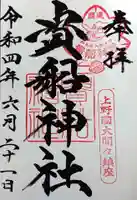 奉拝
上野國大間々鎮座
貴船神社
令和四年六月二十一日